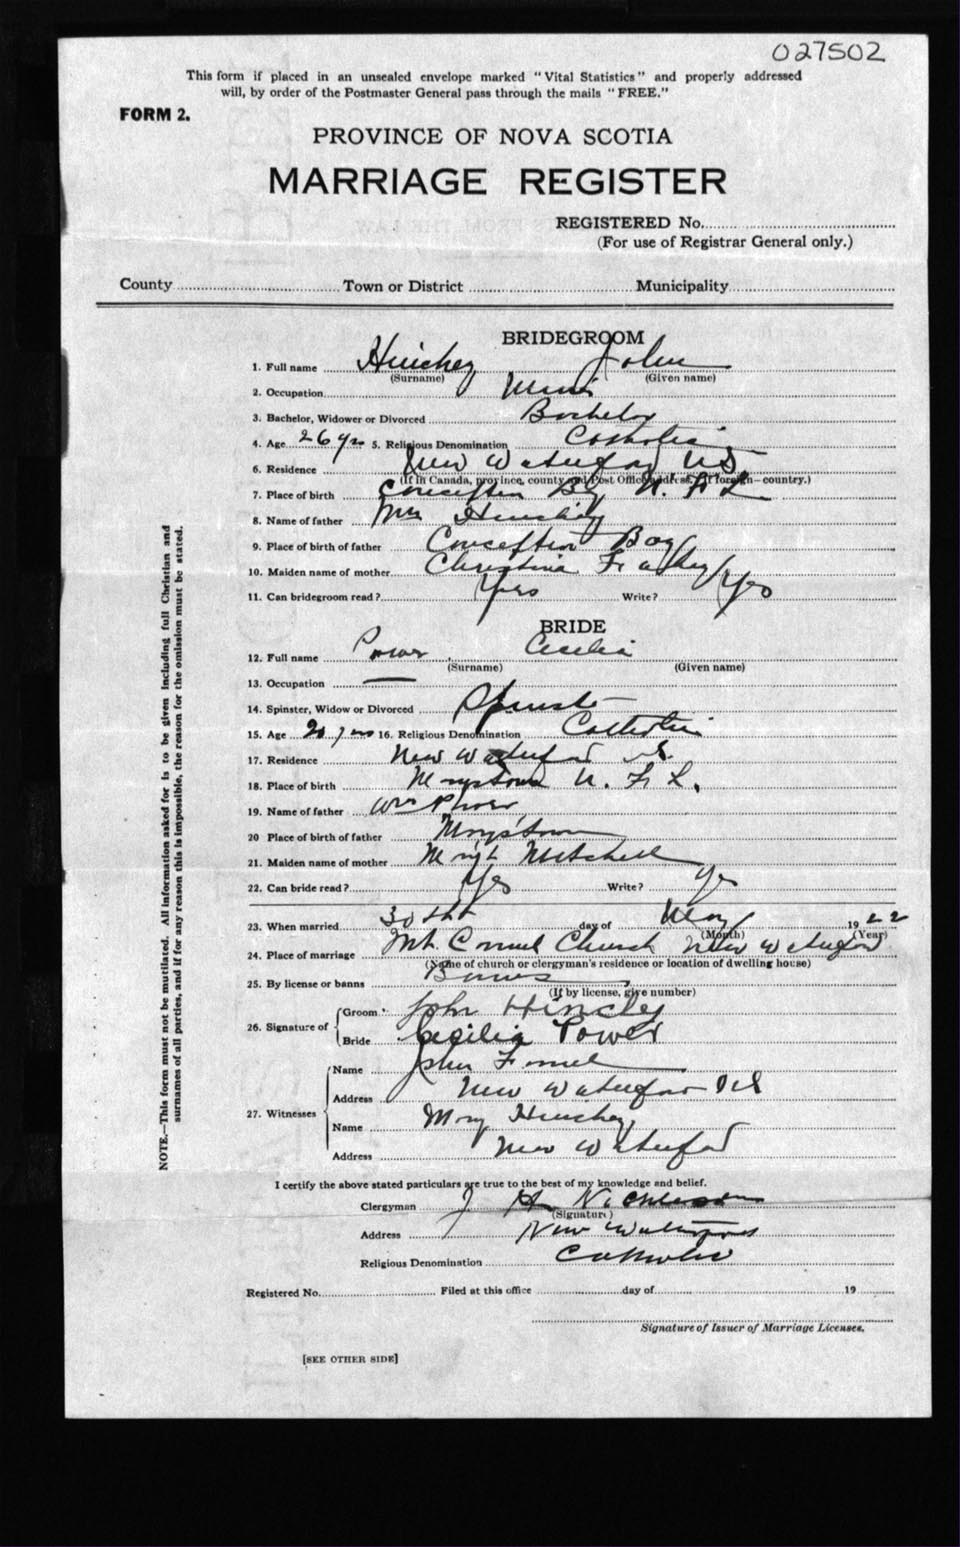 027502
This form if placed in an unsealed envelope marked "Vital Statistics" and properly addressed
will, by order of the Postmaster General pass through the mails "FREE."
FORM 2.
PROVINCE OF NOVA SCOTIA
MARRIAGE REGISTER
REGISTERED No.
(For use of Registrar General only.)
County Town or District Municipality
BRIDEGROOM
1. Full name Hinchey John
(Surname) (Given name)
2. Occupation
3. Bachelor, Widower or Divorced Bachelor
4. Age 26 yrs 5. Religious Denomination Catholic
6. Residence New Waterford NS
(If in Canada, province, county and Post Office address. If foreign—country.)
7. Place of birth Conception Bay N. F. L
8. Name of father Hinchey
9. Place of birth of father Conception Bay
10. Maiden name of mother Christina
11. Can bridegroom read? Yes Write? Yes
BRIDE
12. Full name Power Cecilia
(Surname) (Given name)
13. Occupation —
14. Spinster, Widow or Divorced Spinster
15. Age 20 yrs 16. Religious Denomination Catholic
17. Residence New Waterford
18. Place of birth Marystown N. F. L.
19. Name of father Wm Power
20 Place of birth of father Marystown
21. Maiden name of mother Mitchell
22. Can bride read? Yes Write? Yes
23. When married 30th day of May 1922
(Month) (Year)
24. Place of marriage Mt. Carmel Church New Waterford
(Name of church or clergyman's residence or location of dwelling house)
25. By license or banns Banns
(If by license, give number)
26. Signature of Groom John Hinchey
Bride Cecilia Power
27. Witnesses Name John
Address New Waterford
Name Mary Hinchey
Address New Waterford
I certify the above stated particulars are true to the best of my knowledge and belief.
Clergyman J H Nicholson
(Signature)
Address New Waterford
Religious Denomination Catholic
Registered No. Filed at this office day of 19
Signature of Issuer of Marriage Licenses.
[SEE OTHER SIDE]
NOTE.—This form must not be mutilated. All information asked for is to be given including full Christian and
surnames of all parties, and if for any reason this is impossible, the reason for the omission must be stated.